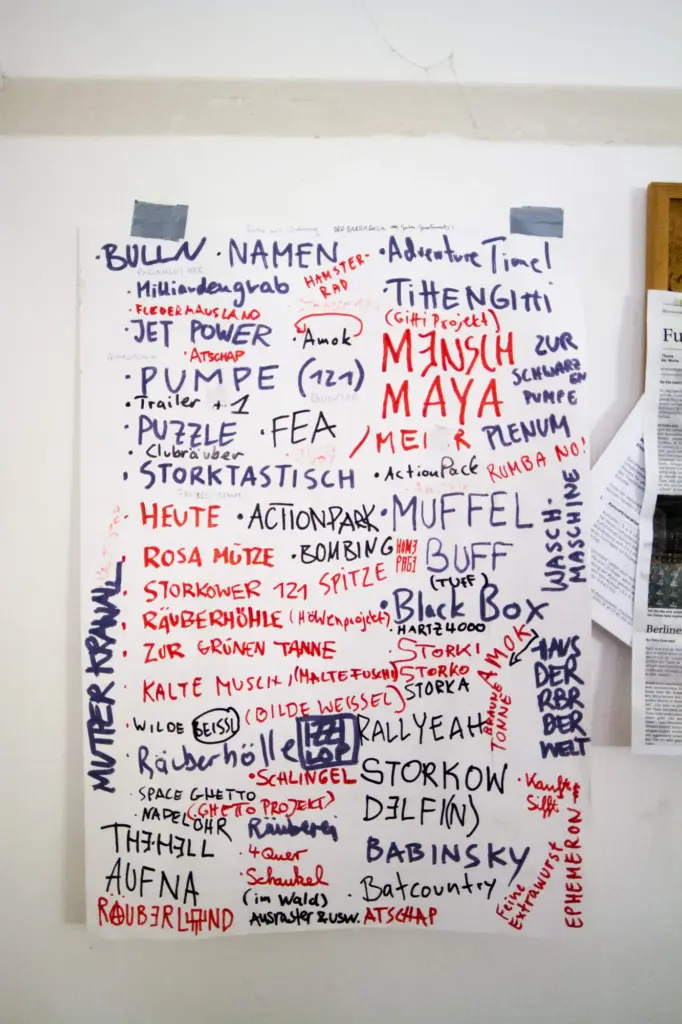 · BULLN · NAMEN
· Milliardengrab
HAMSTER-
RAD
FLEDERMAUSLAND
· JET POWER
· Amok
· ATSCHAP
· PUMPE (121)
· Trailer + 1
· PUZZLE · FEA
· Clubräuber
· STORKTASTISCH
· Adventure Time!
· TITTENGITTI
(Gitti Projekt)
MENSCH
MAYA
/MEI R
ZUR
SCHWARZ
EN
PUMPE
PLENUM
· ActionPack
RUMBA NO!
· HEUTE · ACTIONPARK · MUFFEL
· ROSA MÜTZE · BOMBING
HOME
PAGE
BUFF
(TUFF)
WASCH-
MASCHINE
· STORKOWER 121 SPITZE
· RÄUBERHÖHLE (HÖHLENprojekt)
· Black Box
· HARTZ 4000
· ZUR GRÜNEN TANNE
· STORKI
· STORKO
STORKA
AMOK
· KALTE MUSCHI (MALTE FUSCHI)
(BILDE WEISSEL)
BRAUNE
TONNE
HAUS
DER
RBR
BER
WELT
MUTTER KRAWALL
· WILDE BEISSL
· Räuberhölle
RALLYEAH
· SCHLINGEL
STORKOW
· SPACE GHETTO
(GHETTO PROJEKT)
· NADELÖHR
DELFI(N)
· Kanft &
Sifft
THE HELL
Räuberei
· 4 Quer
BABINSKY
AUFNA
· Schaukel
(im Wald)
· Batcountry
RÄUBERLAND
Ausraster & usw.
ATSCHAP
Feine
Extrawurst
EPHEMERON
Fu
Berliner